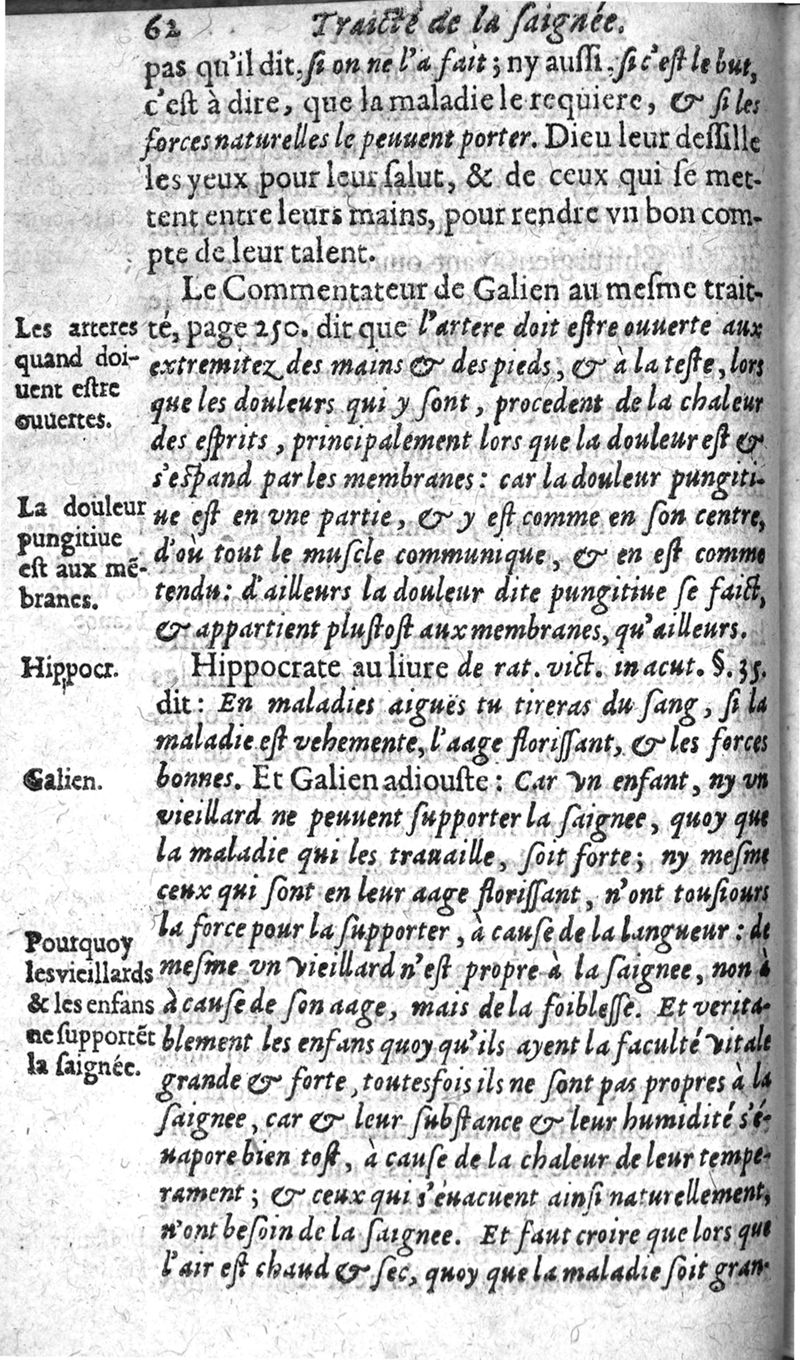 62 Traicté de la ſaignée.
pas qu'il dit, ſi on ne l'a fait; ny auſſi, ſi c'eſt le but,
c'eſt à dire, que la maladie le requiere, & ſi les
forces naturelles le peuuent porter. Dieu leur deſſille
les yeux pour leur ſalut, & de ceux qui ſe met-
tent entre leurs mains, pour rendre vn bon com-
pte de leur talent.
Le Commentateur de Galien au meſme trait-
té, page 250. dit que l'artere doit eſtre ouuerte aux
extremitez des mains & des pieds, & à la teſte, lors
que les douleurs qui y ſont, procedent de la chaleur
des eſprits, principalement lors que la douleur eſt &
s'eſpand par les membranes: car la douleur pungiti-
ue eſt en vne partie, & y eſt comme en ſon centre,
d'où tout le muſcle communique, & en eſt comme
tendu: d'ailleurs la douleur dite pungitiue ſe faict,
& appartient pluſtoſt aux membranes, qu'ailleurs.
Les arteres
quand doi-
uent eſtre
ouuertes.
La douleur
pungitiue
eſt aux mē-
branes.
Hippocrate au liure de rat. vict. in acut. §. 35.
dit: En maladies aiguës tu tireras du ſang, ſi la
maladie eſt vehemente, l'aage floriſſant, & les forces
bonnes. Et Galien adiouſte: Car vn enfant, ny vn
vieillard ne peuuent ſupporter la ſaignee, quoy que
la maladie qui les trauaille, ſoit forte; ny meſme
ceux qui ſont en leur aage floriſſant, n'ont touſiours
la force pour la ſupporter, à cauſe de la langueur: de
meſme vn vieillard n'eſt propre à la ſaignee, non à
à cauſe de ſon aage, mais de la foibleſſe. Et verita-
blement les enfans quoy qu'ils ayent la faculté vitale
grande & forte, toutesfois ils ne ſont pas propres à la
ſaignee, car & leur ſubſtance & leur humidité s'é-
uapore bien toſt, à cauſe de la chaleur de leur tempe-
rament; & ceux qui s'éuacuent ainſi naturellement,
n'ont beſoin de la ſaignee. Et faut croire que lors que
l'air eſt chaud & ſec, quoy que la maladie ſoit gran-
Hippocr.
Galien.
Pourquoy
les vieillards
& les enfans
ne ſupportēt
la ſaignée.